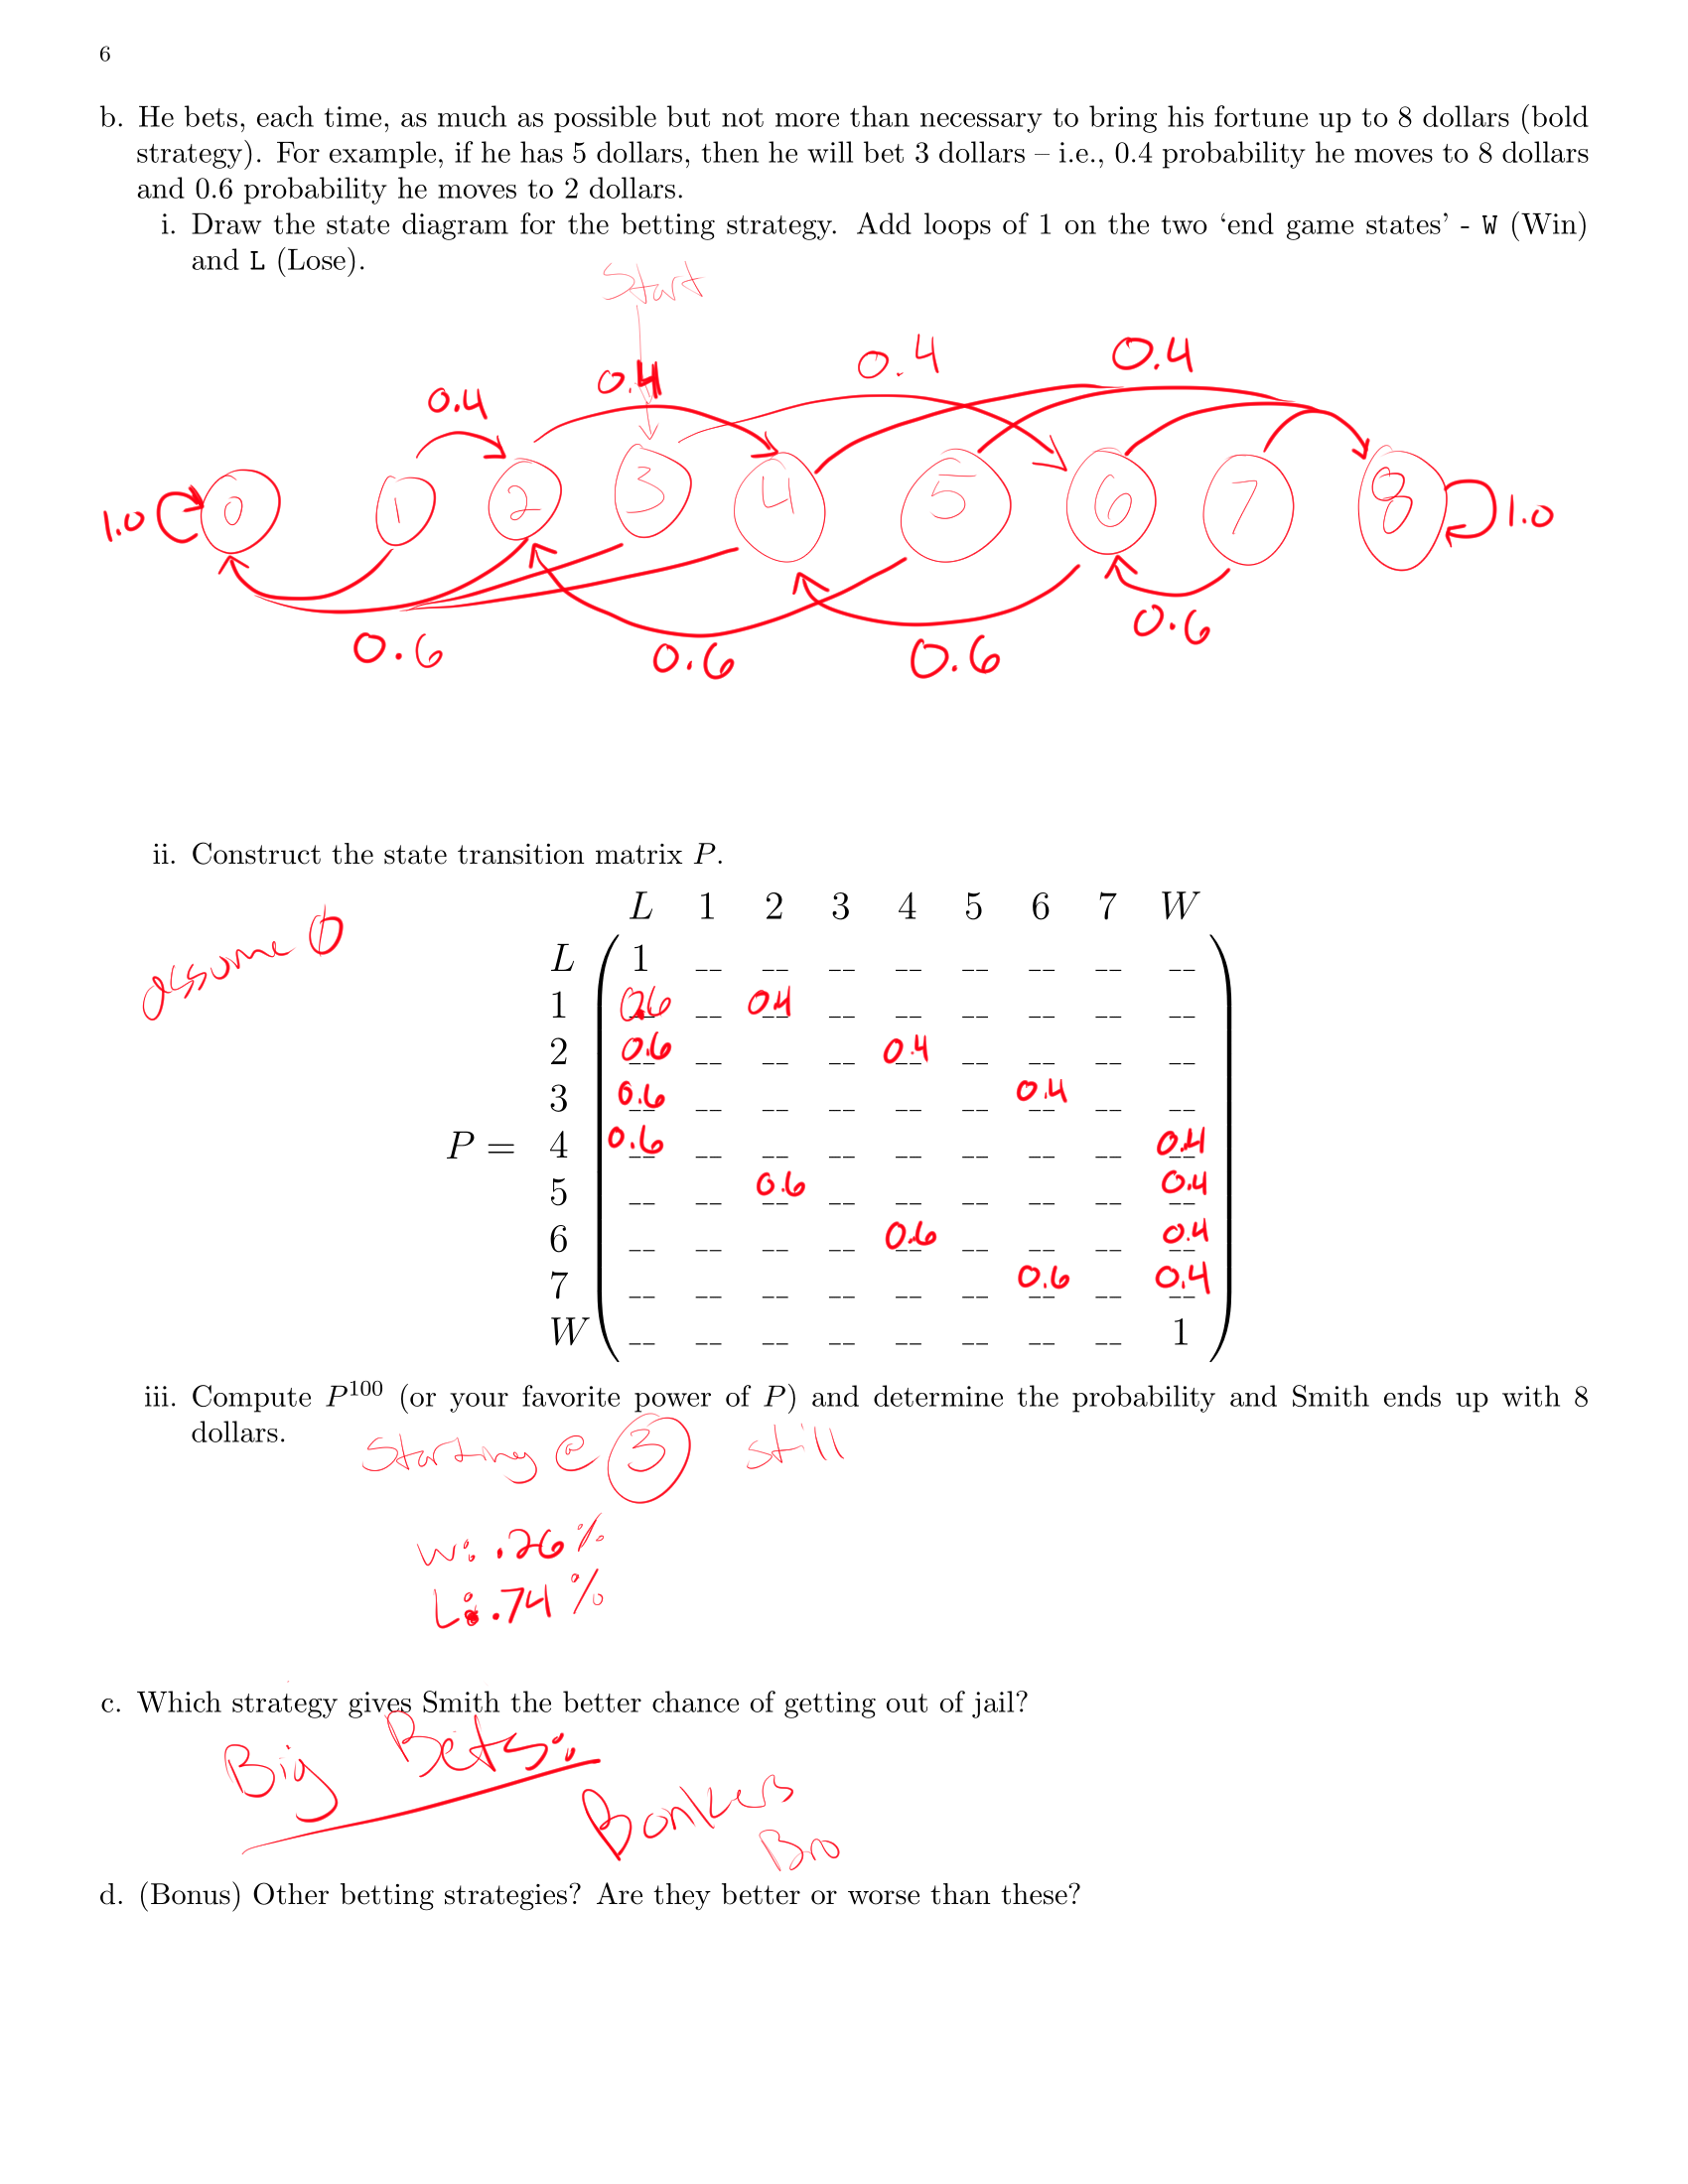 6
b. He bets, each time, as much as possible but not more than necessary to bring his fortune up to 8 dollars (bold
strategy). For example, if he has 5 dollars, then he will bet 3 dollars – i.e., 0.4 probability he moves to 8 dollars
and 0.6 probability he moves to 2 dollars.
i. Draw the state diagram for the betting strategy. Add loops of 1 on the two ‘end game states’ - W (Win)
and L (Lose).
Start
0.4 0.4 0.4 0.4
1.0 0 1 2 3 4 5 6 7 8 1.0
0.6 0.6 0.6 0.6
ii. Construct the state transition matrix P.
assume 0
L 1 2 3 4 5 6 7 W
L 1 __ __ __ __ __ __ __ __
1 0.6 __ 0.4 __ __ __ __ __ __
2 0.6 __ __ __ 0.4 __ __ __ __
3 0.6 __ __ __ __ __ 0.4 __ __
P = 4 0.6 __ __ __ __ __ __ __ 0.4
5 __ __ 0.6 __ __ __ __ __ 0.4
6 __ __ __ __ 0.6 __ __ __ 0.4
7 __ __ __ __ __ __ 0.6 __ 0.4
W __ __ __ __ __ __ __ __ 1
iii. Compute P^100 (or your favorite power of P) and determine the probability and Smith ends up with 8
dollars.
Starting @ 3 still
W: .26 %
L: .74 %
c. Which strategy gives Smith the better chance of getting out of jail?
Big Bets:
Bonkers
Bro
d. (Bonus) Other betting strategies? Are they better or worse than these?